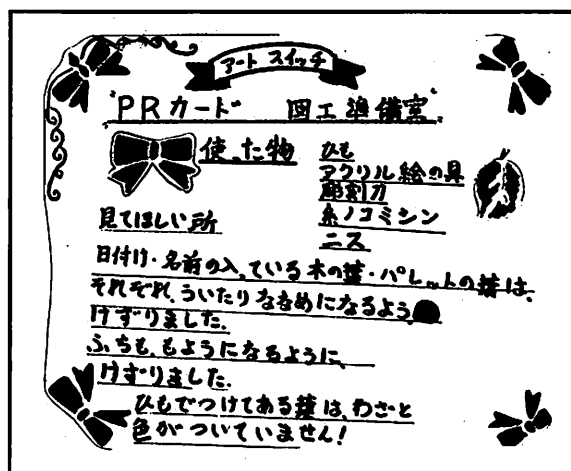 アート スイッチ
"PRカード 図工準備室"
使った物
ひも
アクリル絵の具
彫刻刀
糸ノコミシン
ニス
見てほしい所
日付け・名前の入っている木の葉・パレットの葉は、
それぞれ、ういたりななめになるよう
けずりました。
ふちも、もようになるように、
けずりました。
ひもでつけてある葉は、わざと
色がついていません!